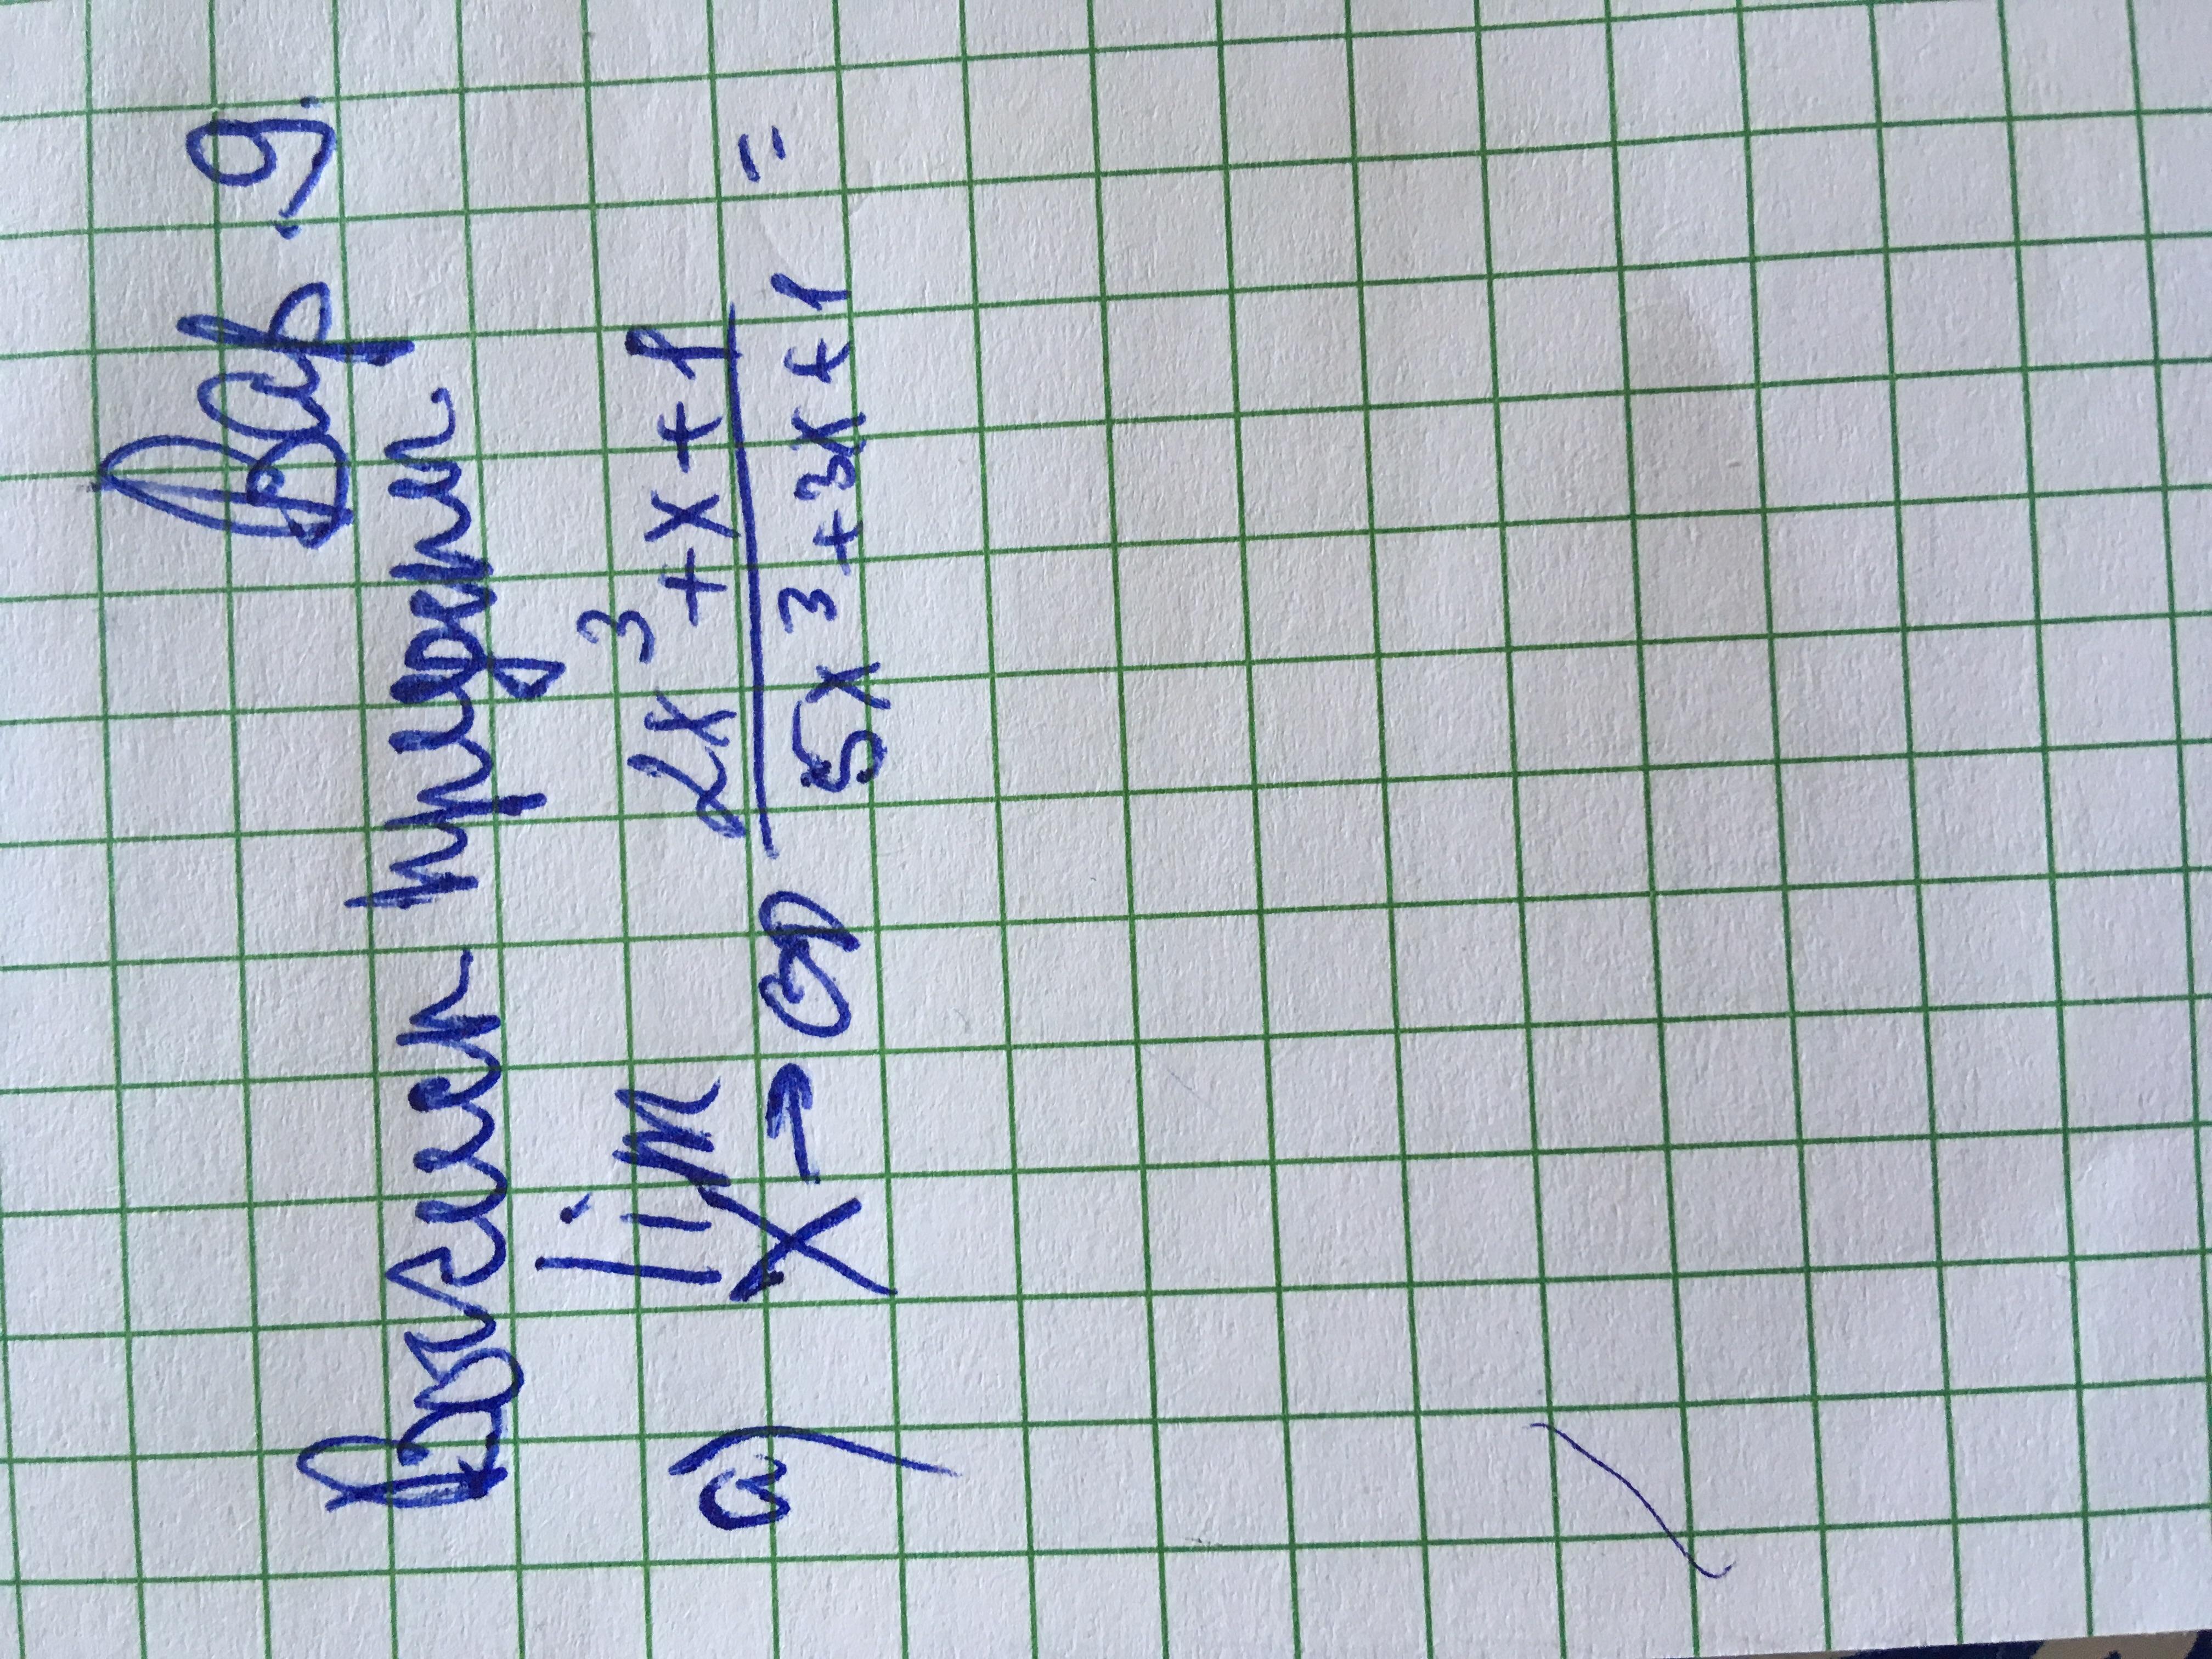 Вар. 9.
Вычислить пределы
а) lim 2x³ + x + 1
x → ∞ 5x³ + 3x + 1 =